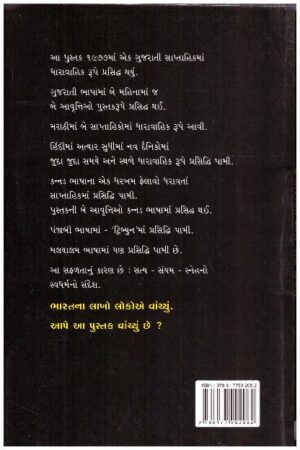 આ પુસ્તક ૧૯૭૭માં એક ગુજરાતી સાપ્તાહિકમાં
ધારાવાહિક રૂપે પ્રસિદ્ધ થયું.
ગુજરાતી ભાષામાં બે મહિનામાં જ
બે આવૃત્તિઓ પુસ્તકરૂપે પ્રસિદ્ધ થઈ.
મરાઠીમાં બે સાપ્તાહિકોમાં ધારાવાહિક રૂપે આવી.
હિંદીમાં અત્યાર સુધીમાં નવ દૈનિકોમાં
જુદા જુદા સમયે અને સ્થળે ધારાવાહિક રૂપે પ્રસિદ્ધિ પામી.
કન્નડ ભાષાના એક ધરખમ ફેલાવો ધરાવતાં
સાપ્તાહિકમાં પ્રસિદ્ધિ પામી.
પુસ્તકની બે આવૃત્તિઓ કન્નડ ભાષામાં પ્રસિદ્ધ થઈ.
પંજાબી ભાષામાં - 'ટ્રિબ્યુન'માં પ્રસિદ્ધિ પામી.
મલયાલમ ભાષામાં પણ પ્રસિદ્ધિ પામી છે.
આ સફળતાનું કારણ છે : સત્ય - સંયમ - સ્નેહનો
સ્વધર્મનો સંદેશ.
ભારતના લાખો લોકોએ વાંચ્યું.
આપે આ પુસ્તક વાંચ્યું છે ?